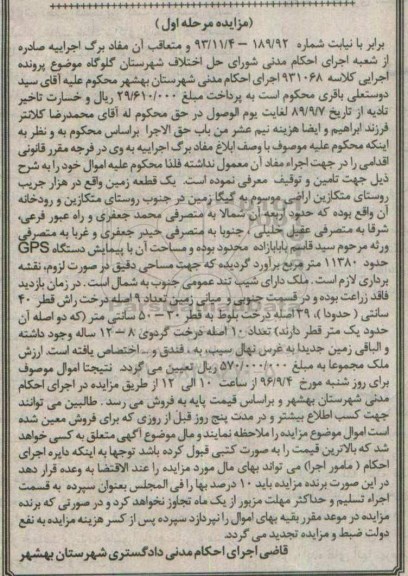 (مزایده مرحله اول)
برابر با نیابت شماره ۱۸۹/۹۲ – ۹۳/۱۱/۴ و متعاقب آن مفاد برگ اجراییه صادره
از شعبه اجرای احکام مدنی شورای حل اختلاف شهرستان گلوگاه موضوع پرونده
اجرایی کلاسه ۹۳۱۰۶۸ اجرای احکام مدنی شهرستان بهشهر محکوم علیه آقای سید
دوستعلی باقری محکوم است به پرداخت مبلغ ۲۹/۶۱۰/۰۰۰ ریال و خسارت تاخیر
تادیه از تاریخ ۸۹/۹/۷ لغایت یوم الوصول در حق محکوم له آقای محمدرضا کلانتر
فرزند ابراهیم و ایضا هزینه نیم عشر من باب حق الاجرا براساس محکوم به و نظر به
اینکه محکوم علیه موصوف با وصف ابلاغ مفاد برگ اجراییه به وی در فرجه مقرر قانونی
اقدامی را در جهت اجراء مفاد آن معمول نداشته فلذا محکوم علیه اموال خود را به شرح
ذیل جهت تامین و توقیف معرفی نموده است. یک قطعه زمین واقع در هزار جریب
روستای متکازین اراضی موسوم به گیگا زمین در جنوب روستای متکازین و رودخانه
آن واقع بوده که حدود اربعه آن شمالا به متصرفی محمد جعفری و راه عبور فرعی،
شرقا به متصرفی عقیل خلیلی ، جنوبا به متصرفی حیدر جعفری و غربا به متصرفی
ورثه مرحوم سید قاسم بابازاده محدود بوده و مساحت آن با پیمایش دستگاه GPS
حدود ۱۱۳۸۰ متر مربع برآورد گردیده که جهت مساحی دقیق در صورت لزوم، نقشه
برداری لازم است . ملک دارای شیب تند عمومی جنوب به شمال است . در زمان بازدید
فاقد زراعت بوده و در قسمت جنوبی و میانی زمین تعداد ۹ اصله درخت راش قطر ۴۰
سانتی ( حدودا )، ۳۹ اصله درخت بلوط به قطر ۳۰ – ۵۰ سانتی متر (که دو اصله آن
حدود یک متر قطر دارند) تعداد ۱۰ اصله درخت گردوی ۸ – ۱۲ ساله وجود داشته
و الباقی زمین جدیدا به غرس نهال سیب، به ، فندق و .. اختصاص یافته است. ارزش
ملک مجموعا به مبلغ ۵۷۰/۰۰۰/۰۰۰ ریال تعیین می گردد. نتیجتا اموال موصوف
برای روز شنبه مورخ ۹۶/۹/۴ از ساعت ۱۰ الی ۱۲ از طریق مزایده در اجرای احکام
مدنی شهرستان بهشهر و براساس قیمت پایه به فروش می رسد . طالبین می توانند
جهت کسب اطلاع بیشتر و در مدت پنج روز قبل از روزی که برای فروش معین شده
است اموال موضوع مزایده را ملاحظه نمایند و مال موضوع آگهی متعلق به کسی خواهد
شد که بالاترین قیمت را به صورت کتبی قبول کرده باشد توجها به اینکه دایره اجرای
احکام ( مامور اجرا) می تواند بهای مال مورد مزایده را عند الاقتضا به وعده قرار دهد
در این صورت برنده مزایده باید ۱۰ درصد بها را فی المجلس بعنوان سپرده به قسمت
اجراء تسلیم و حداکثر مهلت مزبور از یک ماه تجاوز نخواهد کرد و در صورتی که برنده
مزایده در موعد مقرر بقیه بهای اموال را نپردازد سپرده پس از کسر هزینه مزایده به نفع
دولت ضبط و مزایده تجدید می گردد.
قاضی اجرای احکام مدنی دادگستری شهرستان بهشهر